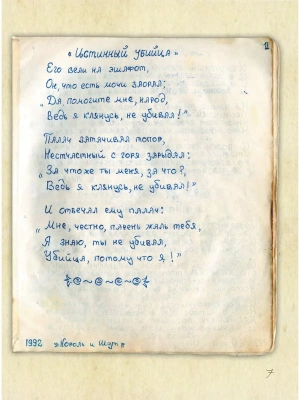 11
« Истинный убийца »
Его вели на эшафот,
Он, что есть мочи заорал:
„Да помогите мне, народ,
Ведь я клянусь, не убивал!“
Палач затачивал топор,
Несчастный с горя зарыдал:
„За что же ты меня, за что?,
Ведь я клянусь, не убивал!“
И отвечал ему палач:
„Мне, честно, парень жаль тебя,
Я знаю, ты не убивал,
Убийца, потому что я!“
1992 „Король и Шут“
7